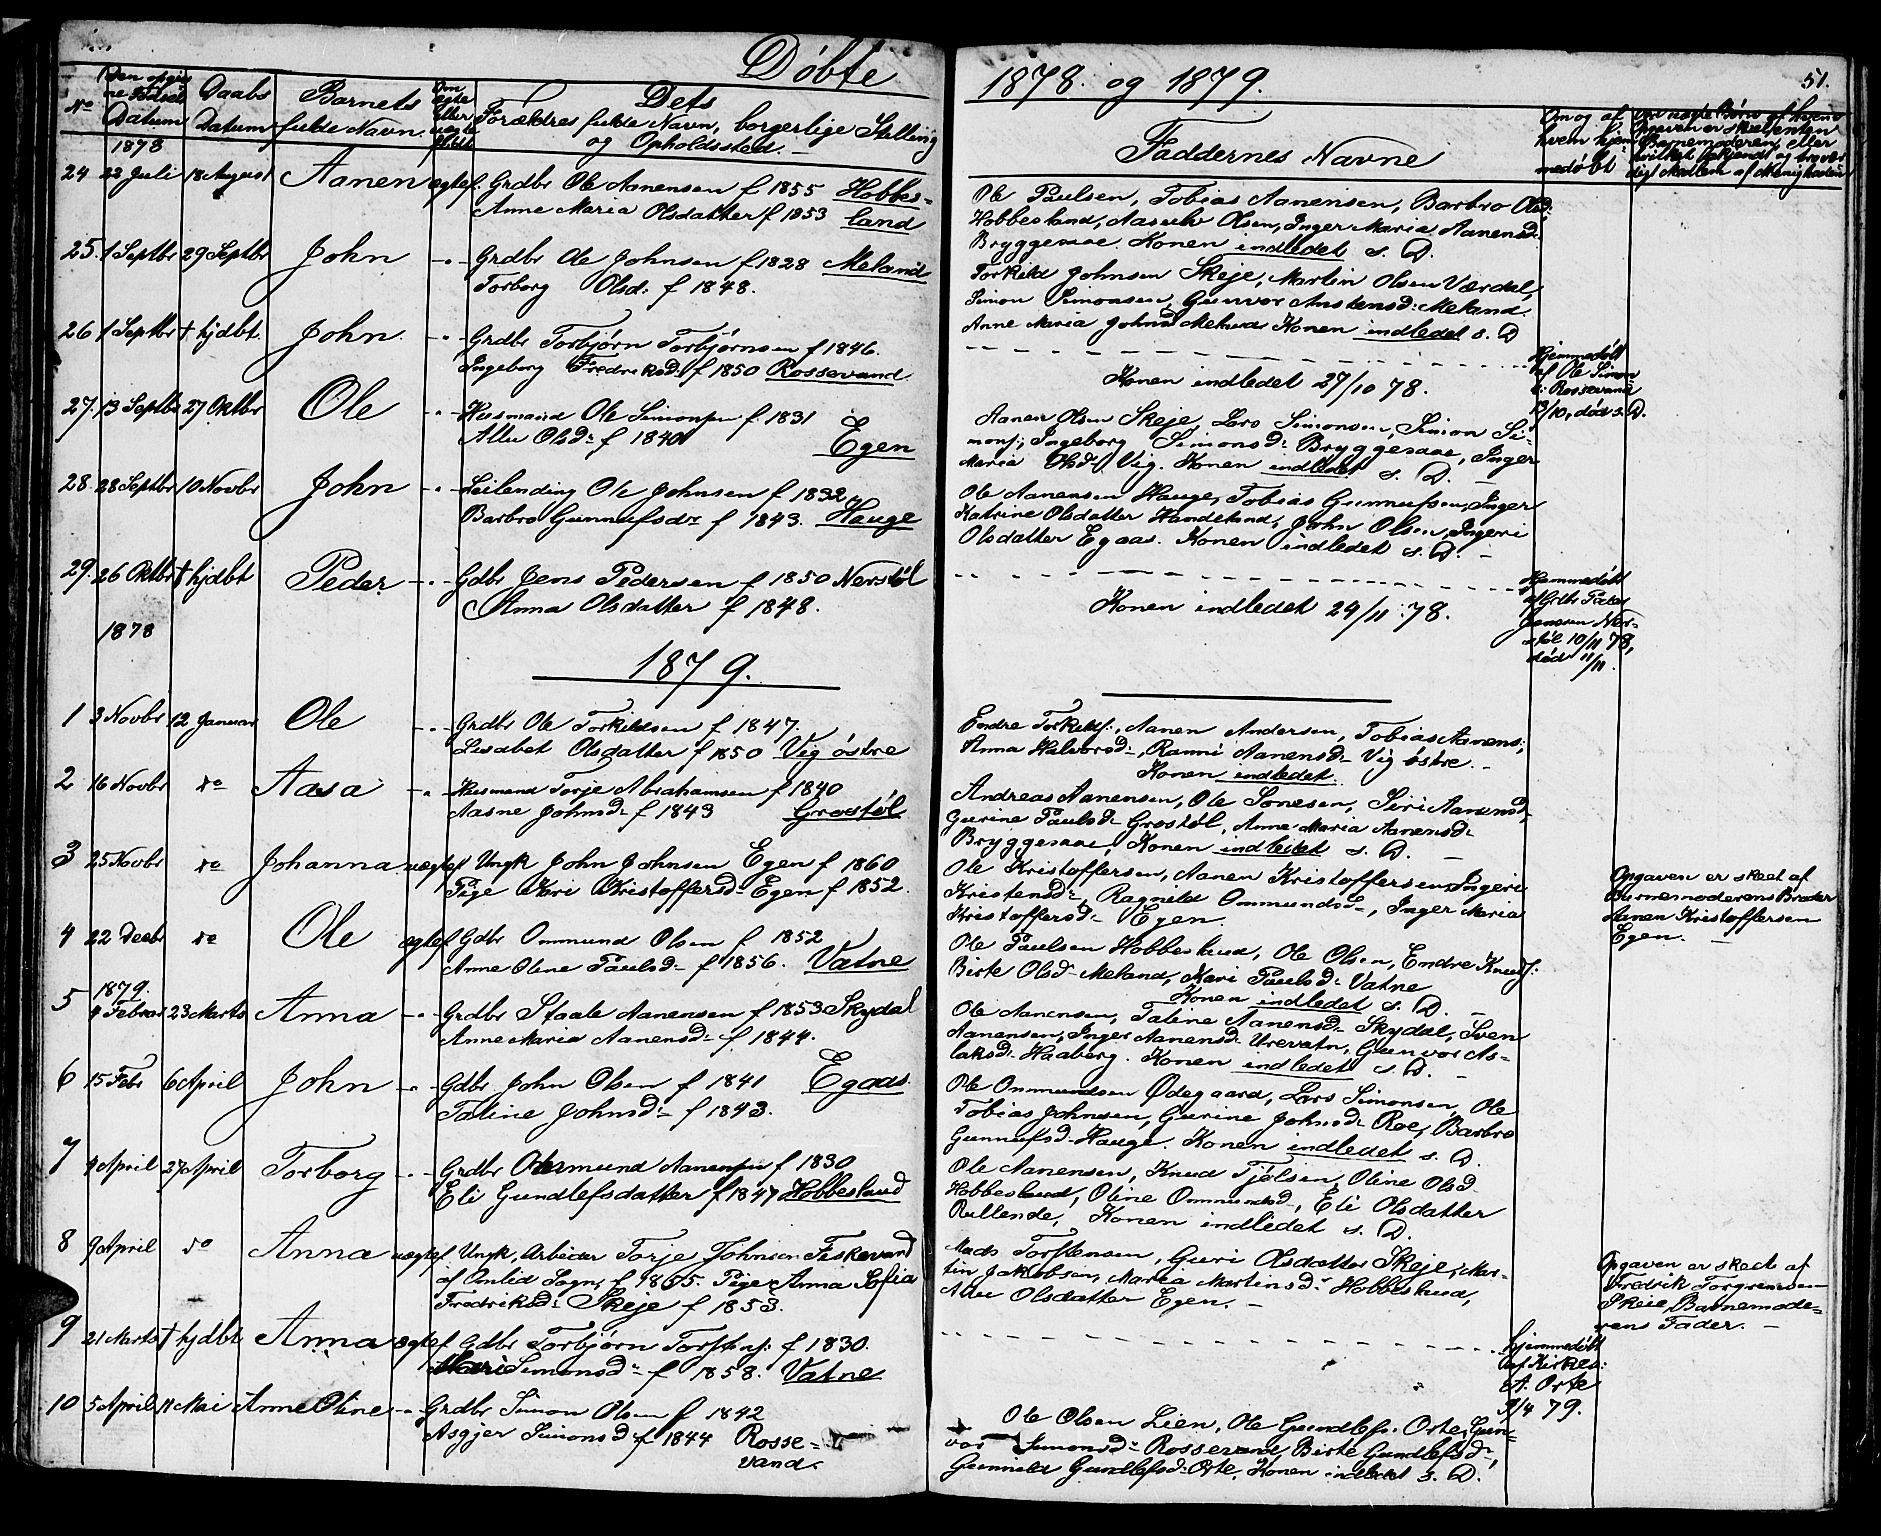 Døbte
Den opgiv
ne Fødsels
Daabs
Barnets
Om
ægte
eller
uægte
født
Dets
No
Datum
Datum
fulde Navn.
Forældres fulde Navn, borgerlige Stilling
og Opholdssted.
1878
24 22 Juli 18 August Aanen ægtef. Grdbr Ole Aanensen f 1855 Hobbes-
Anne Maria Olsdatter f 1853 land
25. 1 Septbr 29 Septbr John -"- Grdbr Ole Johnsen f 1828 Meland
Torborg Olsd: f 1848.
26 1 Septbr † hjdbt. John. -"- Grdbr Torbjørn Torbjørnsen f 1846.
Ingeborg Fredriksd: f 1850 Rossevand
27. 13 Septbr 27 Oktbr Ole -"- Husmand Ole Simonsen f. 1831
f 1840 Egen
28 28 Septbr 10 Novbr John -"- Leilending Ole Johnsen f 1832,
Barbro Gunnufsdr f 1843. Hauge
29. 26 Oktbr † hjdbt Peder -"- Gdbr Jens Pedersen f 1850 Nerstøl
Anna Olsdatter f 1848.
1878
1879.
1 3 Novbr 12 Januar Ole -"- Grdbr Ole Torkildsen f 1847.
Lisabet Olsdatter f 1850 Vig østre
2 16 Novbr do Aasa -"- Husmand Torje Abrahamsen f 1840
Aasne Johnsd- f 1843 Grostøl
3 25 Novbr do Johanna uægtef Ungk John Johnsen Egen f 1860
Pige Kari Kristoffersd- Egen f 1852.
4 22 Decbr do Ole ægtef Gdbr Ommund Olsen f 1852
Anne Oline Paulsd- f 1856. Vatne
1879.
5 4 Februar 23 Marts Anna -"- Grdbr Staale Aanensen f 1853 Skydal
Anne Maria Aanensd- f 1844.
6 15 Febr 6 April John -"- Gdbr John Olsen f 1841 Egaas.
Taline Johnsd- f 1843.
7 4 April 27 April Torborg -"- Grdbr Ommund Aanensen f 1830
Eli Gundlefsdatter f 1847 Hobbesland
8 9 April do Anna uægtef Ungk, Arbeider Torje Johnsen Fiskevand
af Omlid Sogn, f 1855. Pige Anna Sofia
Fredriksd- Skeje f 1853.
9 21 Marts † hjdbt Anna ægtef Gdbr Torbjørn Torstens: f 1830.
Mari Simonsd- f 1858. Vatne
10 5 April 11 Mai Anne Oline -"- Grdbr Simon Olsen f 1842
Asgjer Simonsd- f 1844 Rosse-
vand.
1878. og 1879.
51.
Faddernes Navne
Om og af
hvem hjem
medøbt
Om uægte Børn af hvem
Opgaven er skeet, enten
Barnemoderen, eller
bekjendt og trovær
digt Medlem af Menigheden
Ole Paulsen, Tobias Aanensen, Barbro Olsd:
Hobbesland, Aanulv Olsen, Inger Maria Aanensd:
Bryggesaae. Konen indledet s. D.
Torkild Johnsen Skeje, Martin Olsen Værdal,
Simon Simonsen, Gunvor Anstensd: Meland.
Anne Maria Johnsd Meland Konen indledet s. D
Konen indledet 27/10 78.
Hjemmedøbt
af Ole Simon
Rossevand
13/10, død s. D.
Aanen Olsen Skeje, Lars Simonsen, Simon Si-
mons:, Ingeborg Simonsd: Bryggesaae, Inger
Maria Olsd: Vig. Konen indledet s. D.
Ole Aanensen Hauge, Tobias Gunnufsen, Inger
Katrine Olsdatter Handeland, John Olsen, Ingeri
Olsdatter Egaas. Konen indledet s. D.
Konen indledet 24/11 78.
Hjemmedøbt
af Gdbr Peder
Jenssen Ner-
støl 10/11 78,
død 11/11.
Endre Torkilds:, Aanen Andersen, Tobias Aanens:,
Anna Halvorsd-, Ranni Aanensd- Vig østre.
Konen indledet.
Andreas Aanensen, Ole Sonesen, Siri Aanensd-,
Gurine Paulsd- Grostøl, Anne Maria Aanensd-
Bryggesaae, Konen indledet s. D.
Ole Kristoffersen, Aanen Kristoffersen, Ingeri
Kristensd-, Ragnild Ommundsd-, Inger Maria
Kristoffersd- Egen.
Opgaven er skeet af
Barnemoderens Broder
Aanen Kristoffersen
Egen.
Ole Paulsen Hobbesland, Ole Olsen, Endre Knuds:
Birte Olsd- Meland, Kari Paulsd- Vatne
Konen indledet s. D.
Ole Aanensen, Taline Aanensd- Skydal, Sven
Aanensen, Inger Aanensd- Urevatn, Gunvor As-
laksd- Haaberg. Konen indledet s. D.
Ole Ommundsen Ødegaard, Lars Simonsen, Ole
Tobias Johnsen, Gurine Johnsd- Roe, Barbro
Gunnufsd- Hauge. Konen indledet s. D.
Ole Aanensen, Knud Tjølsen, Oline Olsd
Hobbesland, Oline Ommundsd-, Eli Olsdatter
Rullende, Konen indledet s. D.
Mads Torstensen, Guri Olsdatter Skeje, Mar-
tin Jakobsen, Maria Martinsd- Hobbesland,
Olsdatter Egen.
Opgaven er skeet af
Fredrik Torgrimsen
Skeie, Barnemode-
rens Fader.
hjemmedøbt
af Kirkes:
A. Orte
9/4 79.
Ole Olsen Lien, Ole Gundlefs: Orte, Gun-
vor Simonsd- Rossevand, Birte Gundlefsd-,
Gunnild Gundlefsd- Orte, Konen indledet s. D.